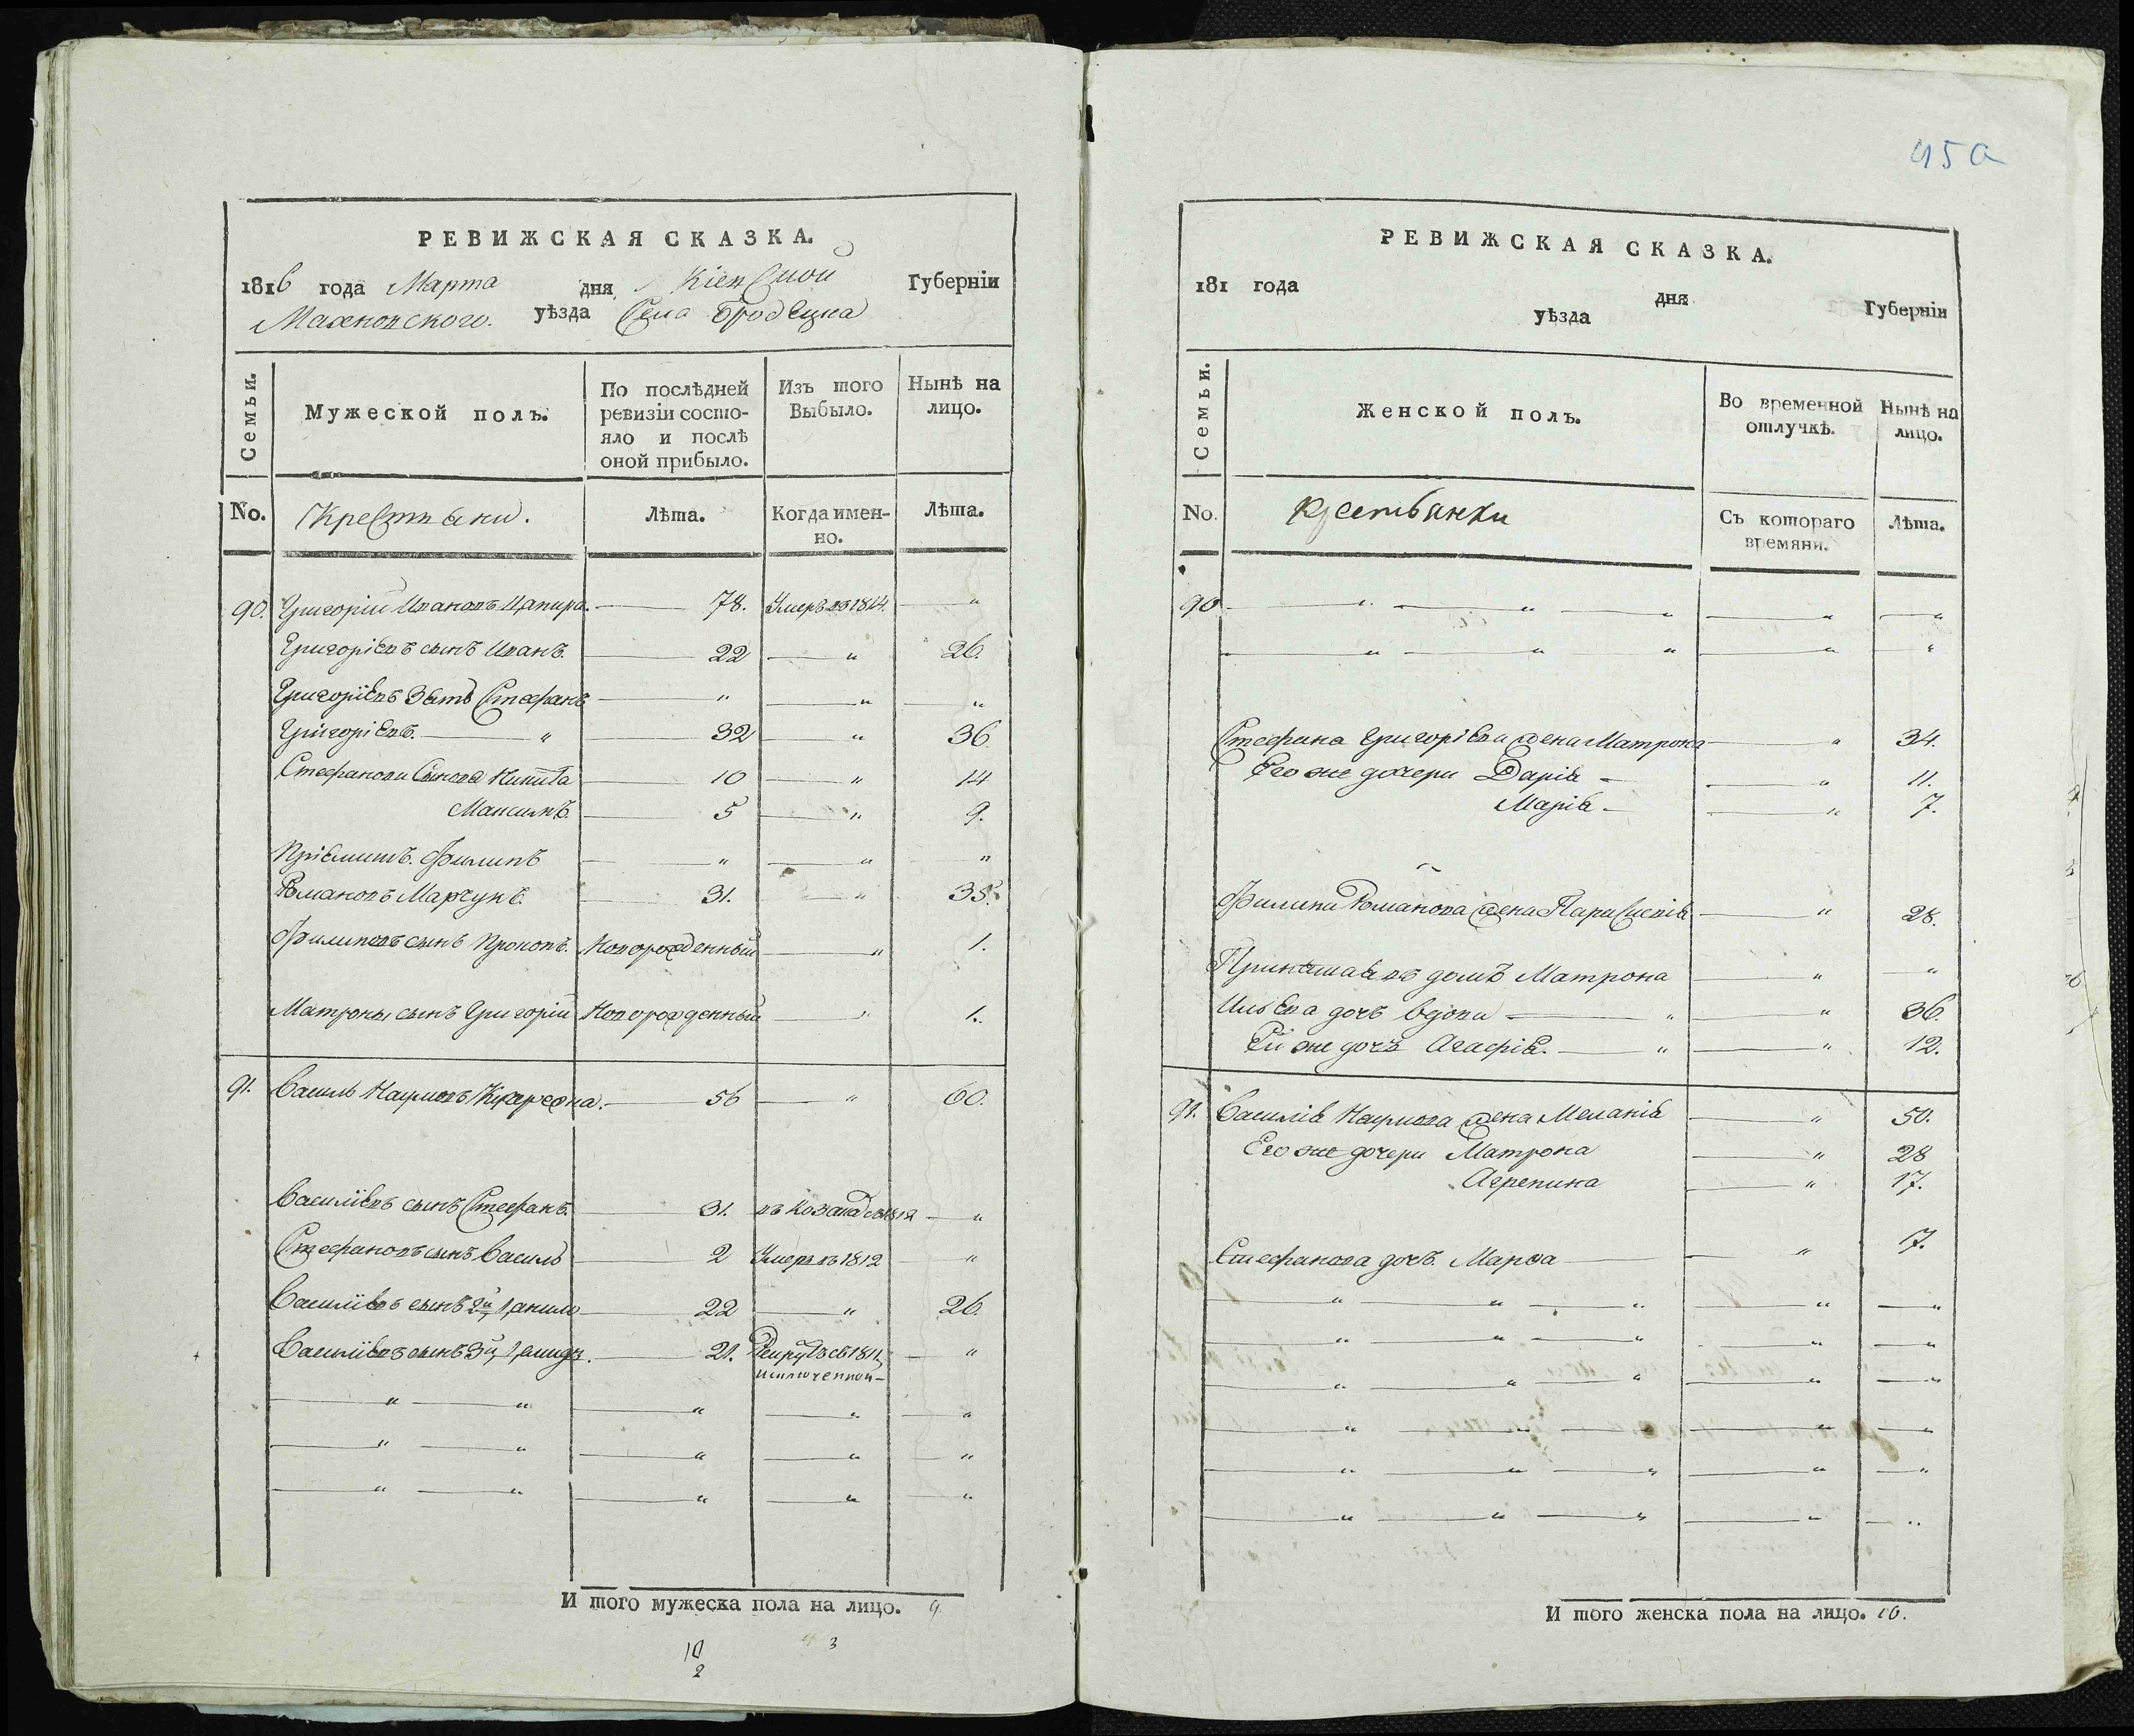 РЕВИЖСКАЯ СКАЗКА.
1816 года Марта дня Кіевской Губерніи
Махновского. уѣзда Села Бродецка
Семьи.
Мужеской полъ.
По послѣдней ревизіи состо-
яло и послѣ
оной прибыло.
Изъ того
Выбыло.
Нынѣ на
лицо.
No. Крестьяни. Лѣта. Когда имен-
но. Лѣта.
90. Григорій Ивановъ Цапира. 78. Умеръ въ 1814. "
Григоріевъ сынъ Иванъ. 22 " 26.
Григоріевъ Зять Стефанъ " " "
Григоріевъ. " 32 " 36
Стефанови Сынова Никита 10 " 14
Максимъ. 5 " 9.
Пріемишъ. Филипъ " " "
Романовъ Марчукъ. 31. " 35.
Филиповъ сынъ Прокопъ. Новорожденный " 1.
Матроны сынъ Григорій Новорожденный " 1.
91. Василь Наумовъ 56 " 60.
Василіевъ сынъ Стефанъ. 31. въ 1812 "
Стефановъ сынъ Василь 2 Умеръ въ 1812 "
Василіевъ сынъ 2й Данило 22 " 26.
Василіевъ сынъ 3й 21. "
" " " " "
" " " " "
" " " " "
И того мужеска пола на лицо. 9.
10 3
2
45а
РЕВИЖСКАЯ СКАЗКА.
181 года дня Губерніи
уѣзда
Семьи.
Женской полъ.
Во временной
отлучкѣ.
Нынѣ на
лицо.
No. крестьянки Съ котораго
времяни. Лѣта.
90 " " " " "
" " " " "
Стефана Григоріева жена Матрона " 34.
Его же дочери Дарія " 11.
Марія " 7.
Филипа Романова жена Параскевія " 28.
Принятая въ домъ Матрона " "
Ильева дочь вдова " " 36.
Ей же дочь Агафія. " " 12.
91. Василія Наумова жена Меланія " 50.
Его же дочери Матрона " 28
Агрепина " 17.
Стефанова дочь Марѳа " 7.
" " " " "
" " " " "
" " " " "
" " " " "
" " " " "
" " " " "
И того женска пола на лицо. 10.